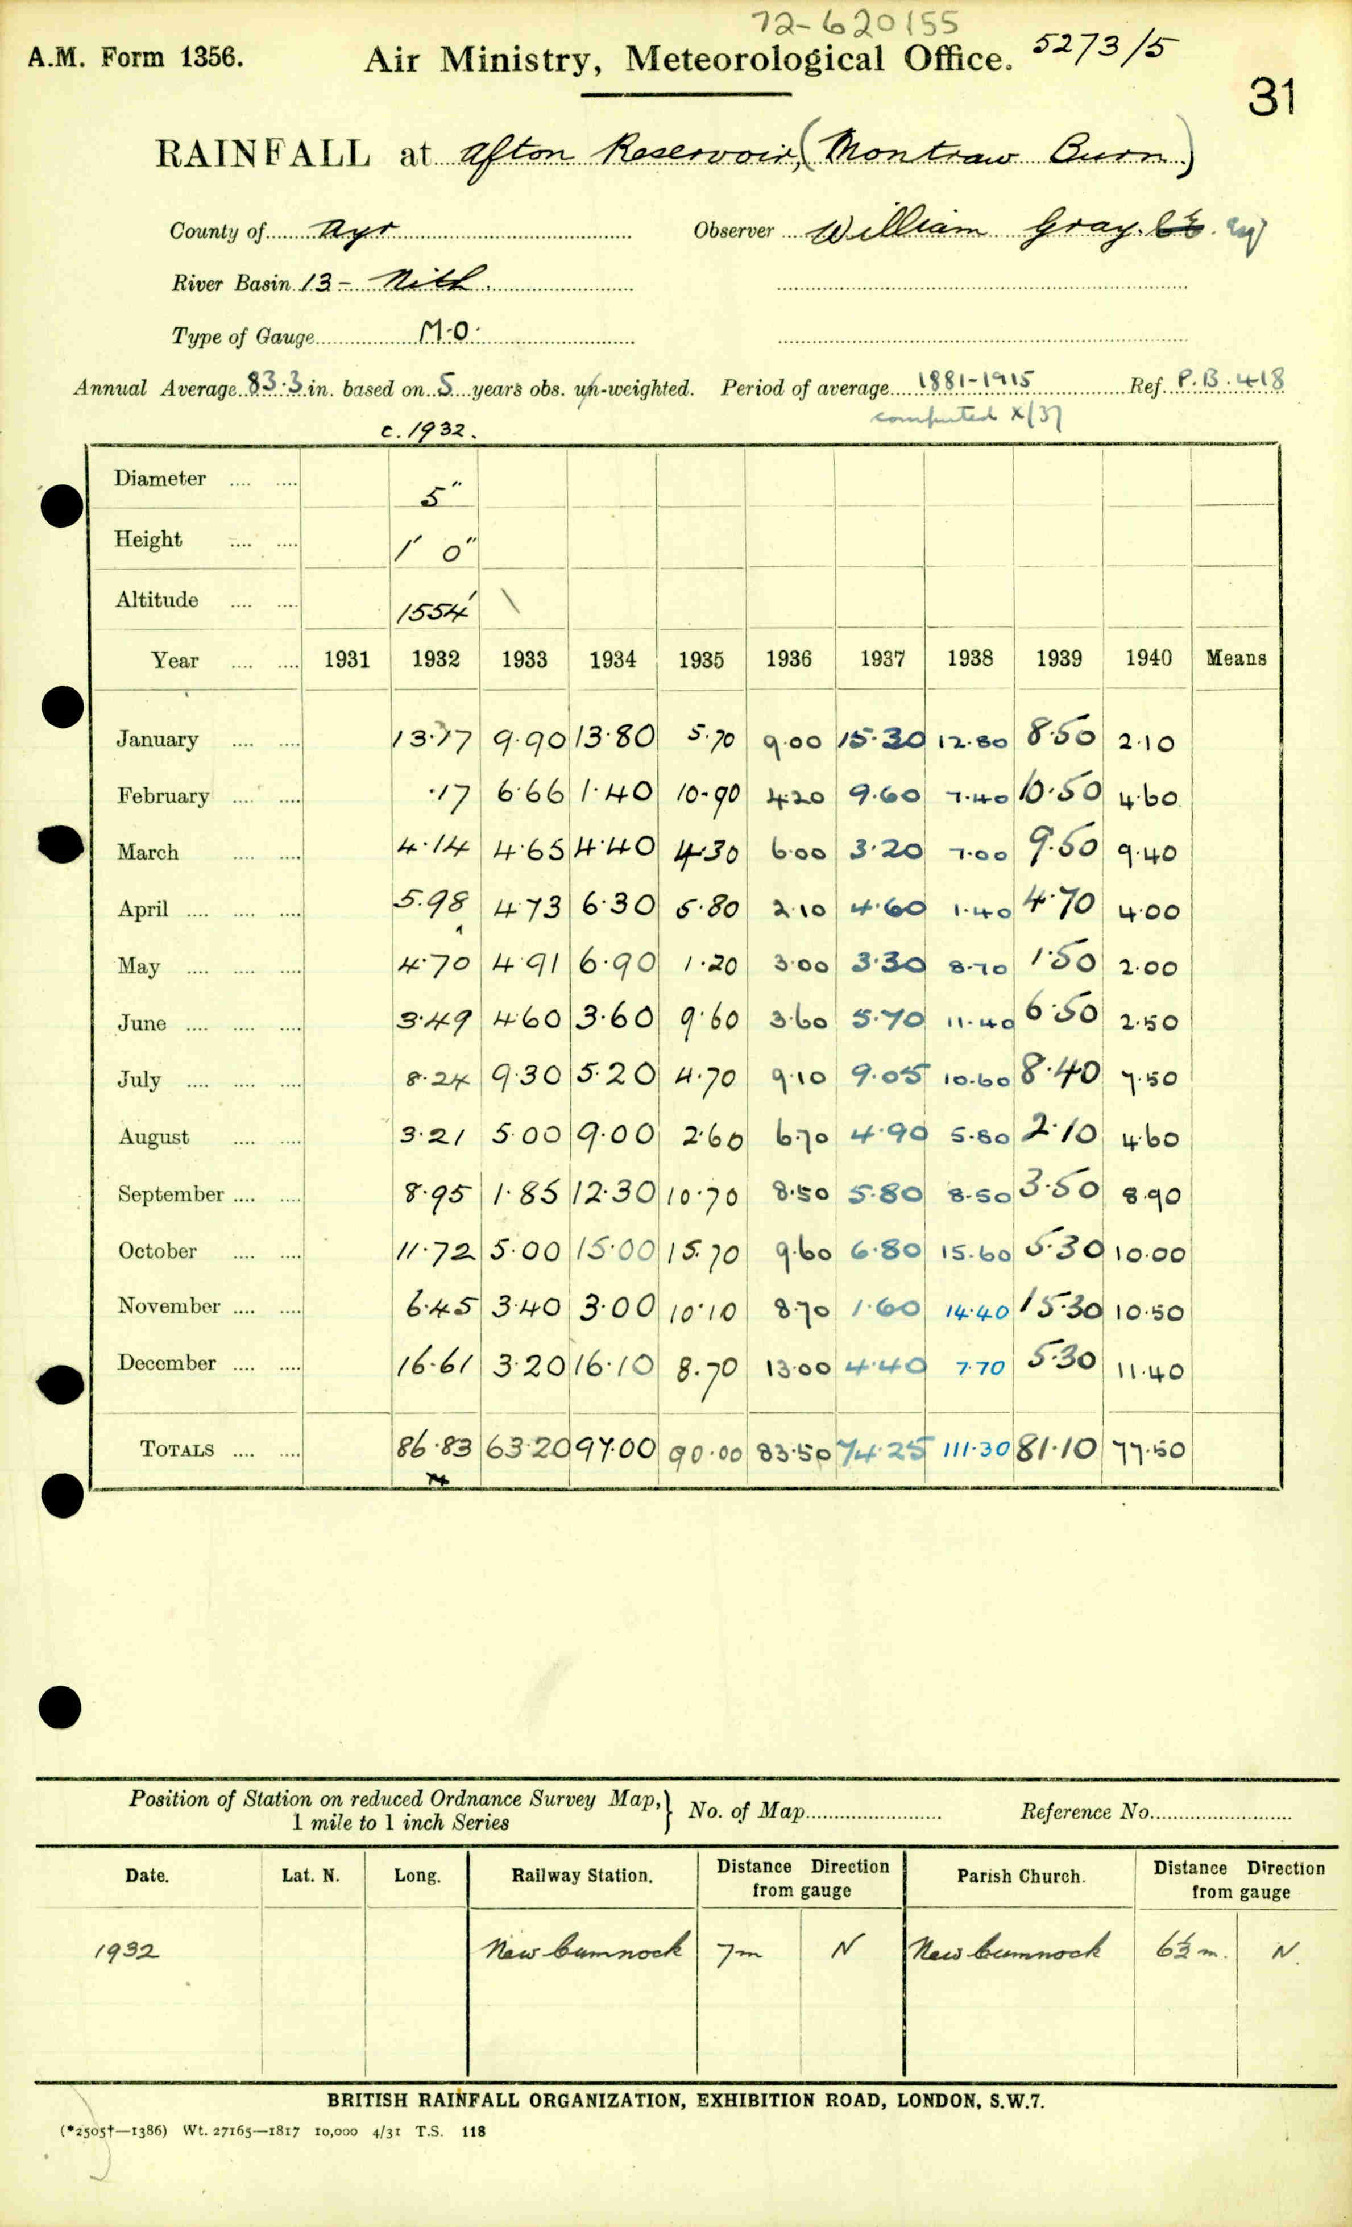 72-620155
A.M. Form 1356. Air Ministry, Meteorological Office. 5273/5
31
RAINFALL at Afton Reservoir, (Montraw Burn)
County of Ayr Observer William Gray. C.E. Esq
River Basin 13 - Nith.
Type of Gauge M.O.
Annual Average 83.3 in. based on 5 years obs. un-weighted. Period of average 1881-1915 Ref. P.B. 418
computed X/37
c. 1932.
Diameter .... .... 5"
Height .... .... 1' 0"
Altitude .... .... 1554' \
Year .... .... 1931 1932 1933 1934 1935 1936 1937 1938 1939 1940 Means
January .... .... 13.17 9.90 13.80 5.70 9.00 15.30 12.80 8.50 2.10
February .... .... .17 6.66 1.40 10.90 4.20 9.60 7.40 10.50 4.60
March .... .... 4.14 4.65 4.40 4.30 6.00 3.20 7.00 9.50 9.40
April .... .... .... 5.98 4.73 6.30 5.80 2.10 4.60 1.40 4.70 4.00
May .... .... .... 4.70 4.91 6.90 1.20 3.00 3.30 8.70 1.50 2.00
June .... .... .... 3.49 4.60 3.60 9.60 3.60 5.70 11.40 6.50 2.50
July .... .... .... 8.24 9.30 5.20 4.70 9.10 9.05 10.60 8.40 7.50
August .... .... 3.21 5.00 9.00 2.60 6.70 4.90 5.80 2.10 4.60
September .... .... 8.95 1.85 12.30 10.70 8.50 5.80 8.50 3.50 8.90
October .... .... 11.72 5.00 15.00 15.70 9.60 6.80 15.60 5.30 10.00
November .... .... 6.45 3.40 3.00 10.10 8.70 1.60 14.40 15.30 10.50
December .... .... 16.61 3.20 16.10 8.70 13.00 4.40 7.70 5.30 11.40
TOTALS .... .... 86.83 63.20 97.00 90.00 83.50 74.25 111.30 81.10 77.50
Position of Station on reduced Ordnance Survey Map, } No. of Map Reference No.
1 mile to 1 inch Series
Date. Lat. N. Long. Railway Station. Distance Direction from gauge Parish Church. Distance Direction from gauge
1932 New Cumnock 7m N New Cumnock 6½ m. N.
BRITISH RAINFALL ORGANIZATION, EXHIBITION ROAD, LONDON, S.W.7.
(*2505†—1386) Wt. 27165—1817 10,000 4/31 T.S. 118